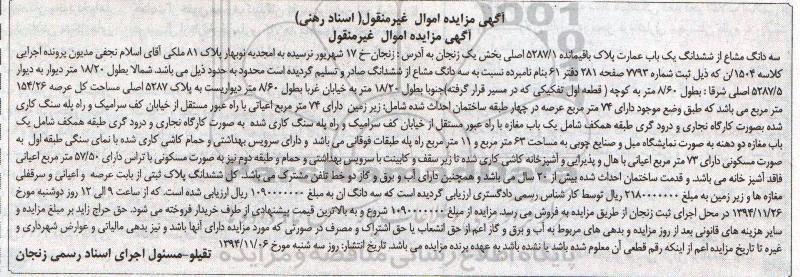 آگهی مزایده اموال غیرمنقول( اسناد رهنی)
آگهی مزایده اموال غیرمنقول
سه دانگ مشاع از ششدانگ یک باب عمارت پلاک باقیمانده ۵۲۸۷/۱ اصلی بخش یک زنجان به آدرس : زنجان-خ ۱۷ شهریور نرسیده به امجدیه نوبهار پلاک ۸۱ ملکی آقای اسلام نجفی مدیون پرونده اجرایی
کلاسه ۱۵۰۴/ن که ذیل ثبت شماره ۷۷۹۳ صفحه ۲۸۱ دفتر ۶۱ بنام نامبرده نسبت به سه دانگ مشاع از ششدانگ صادر و تسلیم گردیده است محدود به حدود ذیل می باشد. شمالا بطول ۱۸/۲۰ متر دیوار به دیوار
۵۲۸۷/۵ اصلی شرقا : بطول ۸/۶۰ متر به کوچه ( قطعه اول تفکیکی که در مسیر قرار گرفته)جنوبا بطول ۱۸/۲۰ متر به خیابان غربا بطول ۸/۶۰ متر دیواریست به پلاک ۵۲۸۷ اصلی مساحت کل عرصه ۱۵۴/۲۶
متر مربع می باشد که طبق وضع موجود دارای ۷۴ متر مربع عرصه در چهار طبقه ساختمان احداث شده شامل: زیر زمین دارای ۷۴ متر مربع اعیانی با راه عبور مستقل از خیابان کف سرامیک و راه پله سنگ کاری
شده بصورت کارگاه نجاری و درود گری طبقه همکف شامل یک باب مغازه با راه عبور مستقل از خیابان کف سرامیک و راه پله سنگ کاری شده به صورت کارگاه نجاری و درود گری طبقه همکف شامل یک
باب مغازه دو دهنه به صورت نمایشگاه مبل و صنایع چوبی به مساحت ۶۳ متر مربع و ۱۱ متر مربع راه پله طبقات فوقانی می باشد و دارای سرویس بهداشتی و حمام کاشی کاری شده با نمای سنگی طبقه اول به
صورت مسکونی دارای ۷۳ متر مربع اعیانی با هال و پذیرایی و آشپزخانه کاشی کاری شده تا زیر سقف و کابینت با سرویس بهداشتی و حمام و طبقه دوم نیز به صورت مسکونی با تراس دارای ۵۷/۵۰ متر مربع اعیانی
فاقد آشپز خانه می باشد و قدمت ساختمان احداث شده بیش از ۲۰ سال می باشد و همچنین دارای آب و برق و گاز دو خط تلفن مشترک می باشد. کل ششدانگ پلاک ثبتی از بابت عرصه و اعیانی و سرقفلی
مغازه ها و زیر زمین به مبلغ ۲۱۸۰۰۰۰۰۰۰ ریال توسط کار شناس رسمی دادگستری ارزیابی گردیده است که سه دانگ ان به مبلغ ۱۰۹۰۰۰۰۰۰۰ ریال ارزیابی شده است. که از ساعت ۹ الی ۱۲ روز دوشنبه مورخ
۱۳۹۴/۱۱/۲۶ در محل اجرای ثبت زنجان از طریق مزایده به فروش می رسد. مزایده از مبلغ ۱۰۹۰۰۰۰۰۰۰ شروع و به بالاترین قیمت پیشنهادی از طرف خریدار فروخته می شود. حق حراج زاید بر مبلغ مزایده و
سایر هزینه های قانونی بعد از روز مزایده و بدهی های مربوط به آب و برق و گاز اعم از حق انشعاب یا حق اشتراک و مصرف در صورتی که مورد مزایده دارای آنها باشد و نیز بدهی مالیاتی و عوارض شهرداری و
غیره تا تاریخ مزایده اعم از اینکه رقم قطعی آن معلوم شده باشد یا نشده باشد به عهده برنده مزایده می باشد. تاریخ انتشار: روز سه شنبه مورخ ۱۳۹۴/۱۱/۰۶ تقیلو-مسئول اجرای اسناد رسمی زنجان